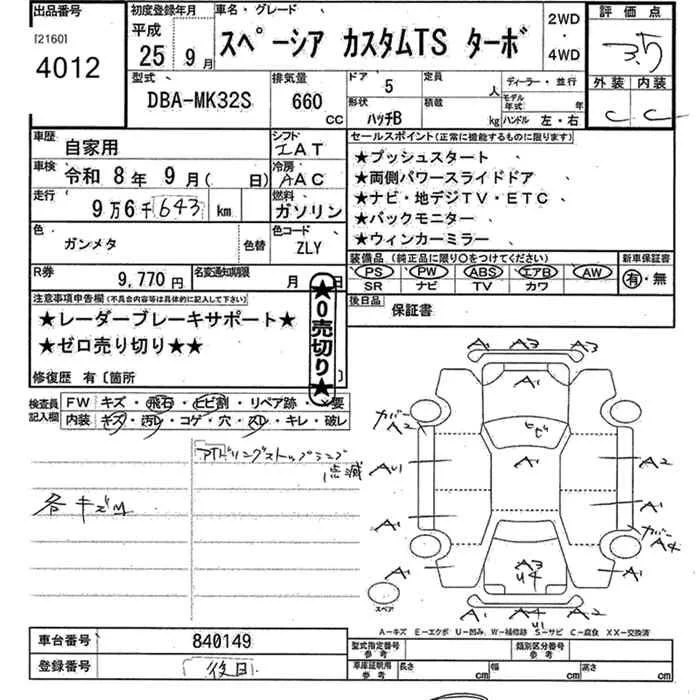 出品番号
[2160]
4012
初度登録年月
平成
25 9月
車名・グレード
スペーシア カスタムTS ターボ
2WD
・
4WD
評価点
3.5
外装 内装
C C
型式
DBA-MK32S
排気量
660
CC
ドア 5
形状
ハッチB
定員 人
積載 kg
ディーラー・並行
モデル年式 年
ハンドル 左・右
車歴
自家用
シフト
IAT
車検
令和 8年 9月( 日)
冷房
AAC
走行
9万6千643 km
燃料
ガソリン
色
ガンメタ
色替
色コード
ZLY
R券
9,770円
名変通知期限
月 日
セールスポイント(正常に機能するものに限ります)
★プッシュスタート
★両側パワースライドドア
★ナビ・地デジTV・ETC
★バックモニター
★ウィンカーミラー
装備品 (純正品に限り○をつけてください)
PS PW ABS エアB AW
SR ナビ TV カワ
新車保証書
有・無
後日品
保証書
注意事項申告欄(不具合内容等は具体的に記入して下さい)
★レーダーブレーキサポート★
★ゼロ売り切り★★
★0売切り★
修復歴 有〔箇所 〕
検査員記入欄
FW キズ・飛石・ヒビ割・リペア跡・×要
内装 キズ・汚レ・コゲ・穴・スレ・キレ・破レ
アイドリングストップランプ
点滅
各キズU
A1 A3 A3
A1
カバー
A2
ヒビ
AU A1 A2
A1 A1
カバー
A4
A1 A3 A1
U4
スペア
A1 A4 A2
U1
A-キズ E-エクボ U-凹み W-補修跡 S-サビ C-腐食 XX-交換済
車台番号 840149
登録番号 後日
型式指定番号
参考
類別区分番号
参考
車庫証明用
参考
長さ cm 幅 cm 高さ cm